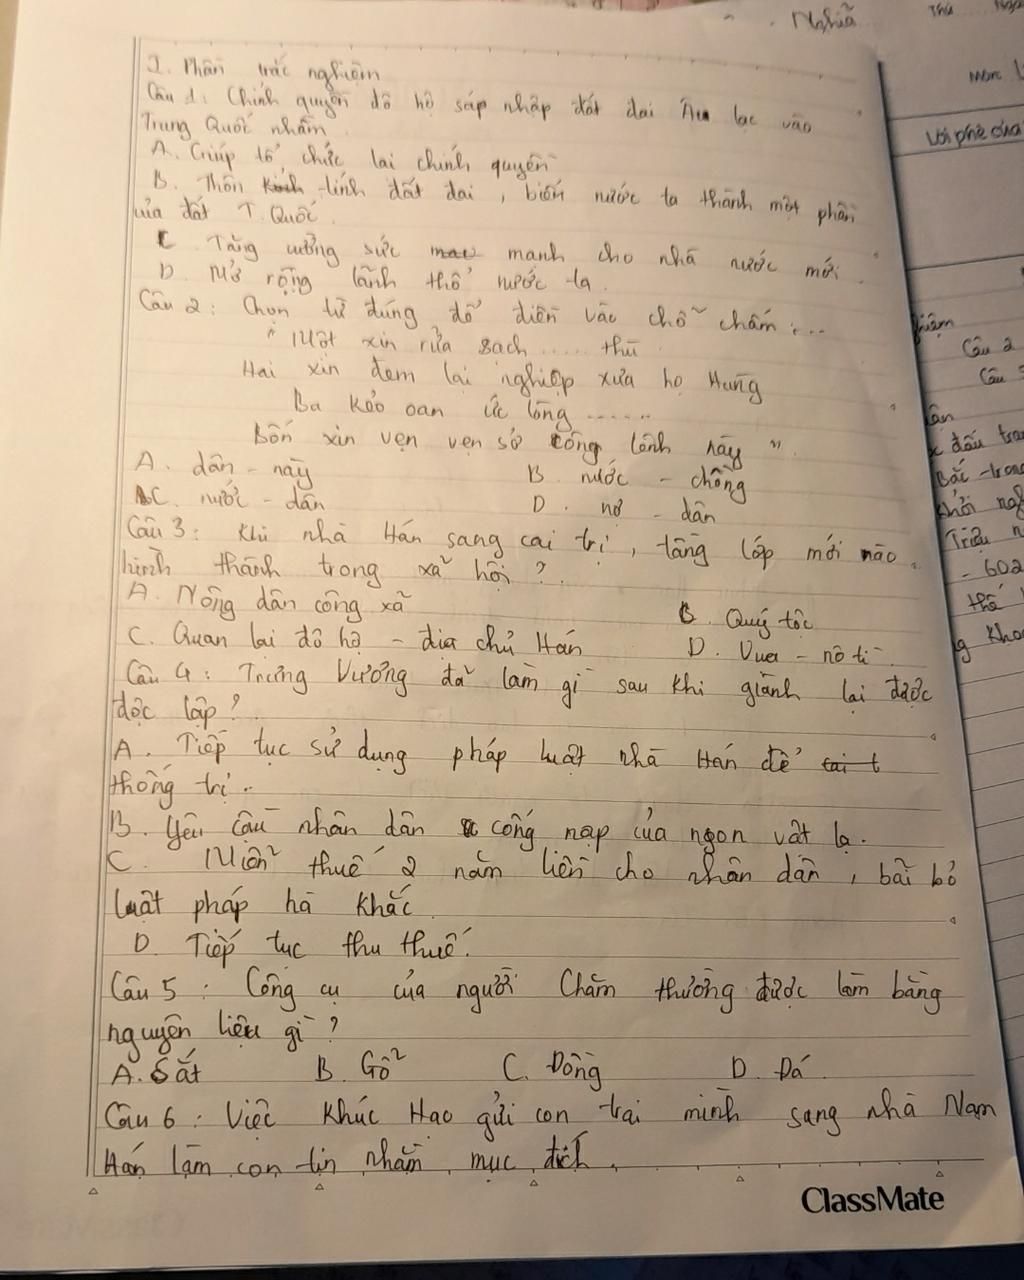 Nghĩa
Thứ Ngà
Môn: L
Lời phê của
I. Phần trắc nghiệm
Câu 1: Chính quyền đô hộ sáp nhập đất đai Âu lạc vào
Trung Quốc nhằm
A. Giúp tổ chức lại chính quyền
B. Thôn tính đất đai, biến nước ta thành một phần
của đất T. Quốc.
C. Tăng cường sức mạnh cho nhà nước mới
D. Mở rộng lãnh thổ nước ta.
Câu 2: Chọn từ đúng để điền vào chỗ chấm: ...
"Một xin rửa sạch ..... thù
Hai xin đem lại nghiệp xưa họ Hùng
Ba kẻo oan ức lòng ......
Bốn xin vẹn vẹn sở công lênh này".
A. dân - này
B. nước - chồng
C. nước - dân
D. nợ - dân
Câu 3: Khi nhà Hán sang cai trị, tầng lớp mới nào
hình thành trong xã hội?
A. Nông dân công xã
B. Quý tộc
C. Quan lại đô hộ - địa chủ Hán
D. Vua - nô tì.
Câu 4: Trưng Vương đã làm gì sau khi giành lại được
độc lập?
A. Tiếp tục sử dụng pháp luật nhà Hán để
thống trị.
B. Yêu cầu nhân dân cống nạp của ngon vật lạ.
C. Miễn thuế 2 năm liền cho nhân dân, bãi bỏ
luật pháp hà khắc
D. Tiếp tục thu thuế.
Câu 5: Công cụ của người Chăm thường được làm bằng
nguyên liệu gì?
A. Sắt
B. Gỗ
C. Đồng
D. Đá
Câu 6: Việc Khúc Hạo gửi con trai mình sang nhà Nam
Hán làm con tin nhằm mục đích
ClassMate
Câu 2
Câu 5
đấu tra
Bắc - tron
khởi ngh
Triệu
- 602
thế